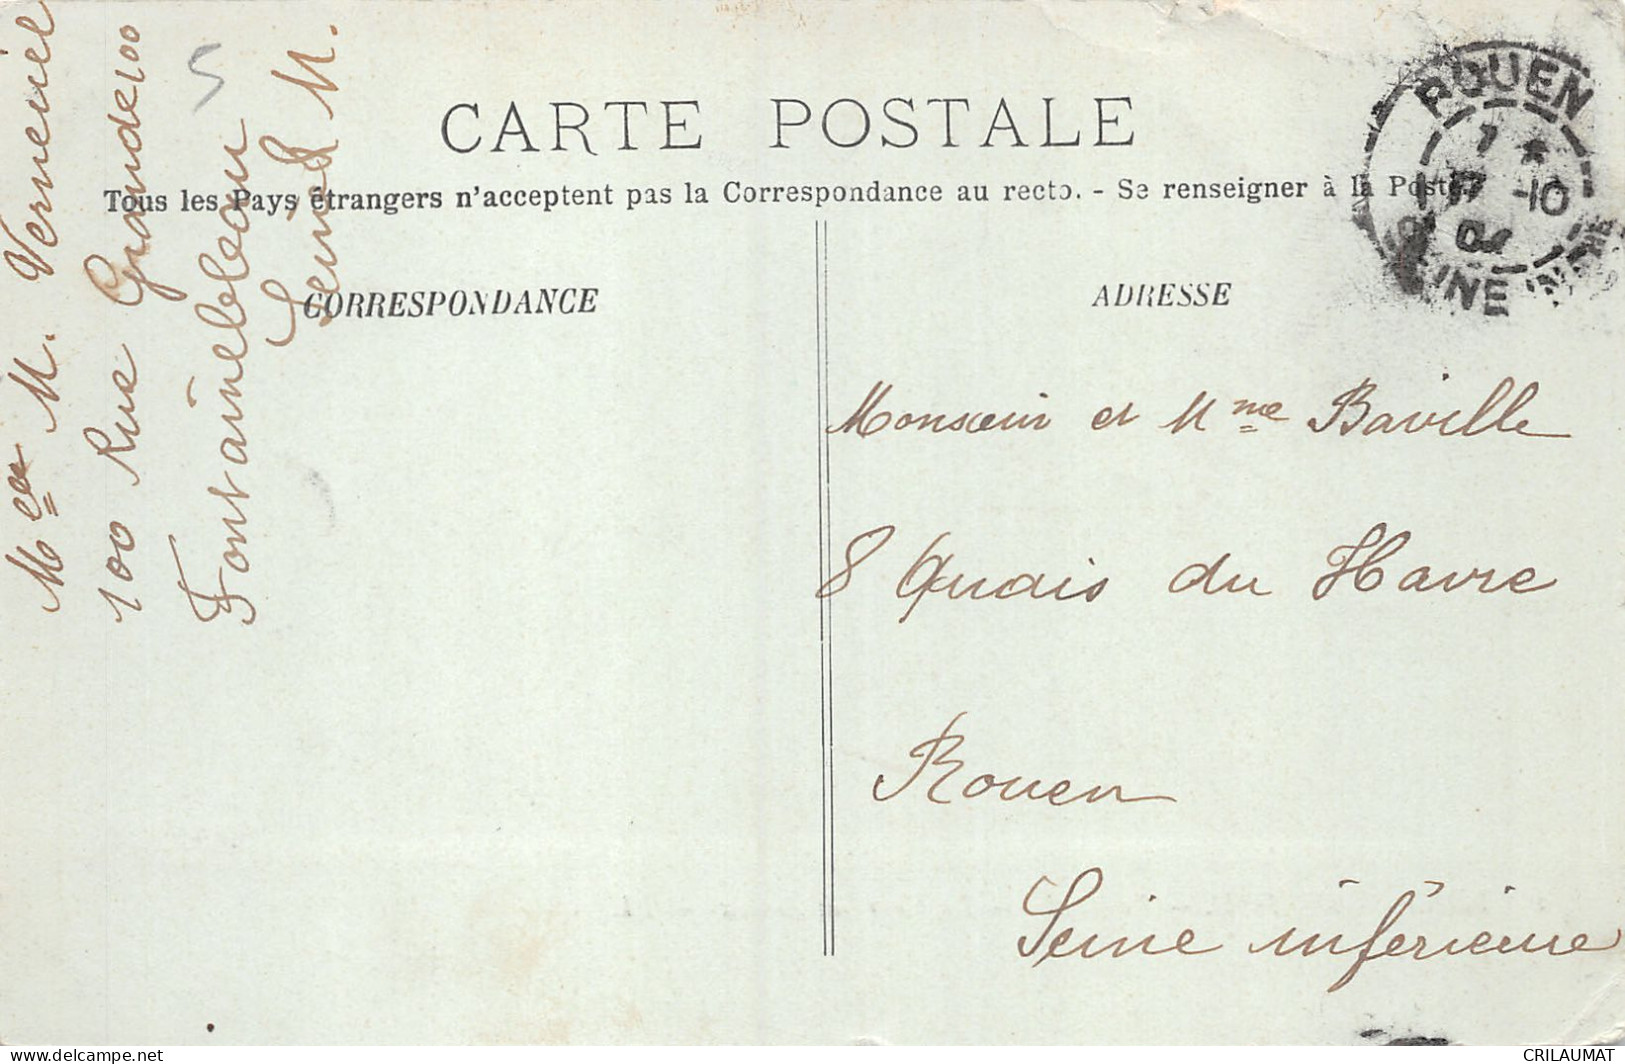 CARTE POSTALE
Tous les Pays étrangers n'acceptent pas la Correspondance au recto. - Se renseigner à la Poste.
CORRESPONDANCE
ADRESSE
ROUEN
-10
Monsieur et Mme Baville
8 Quais du Havre
Rouen
Seine inférieure
M. Verneuil
100 Rue Grande 100
Fontainebleau
Seine & M.
5
CRILAUMAT